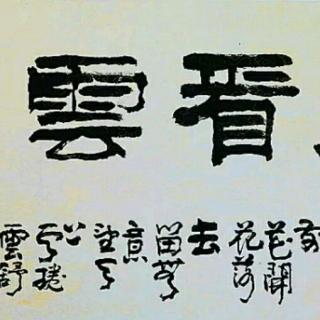 看雲
前
花開
花落
去
留無
意
望天
上
雲捲
雲舒